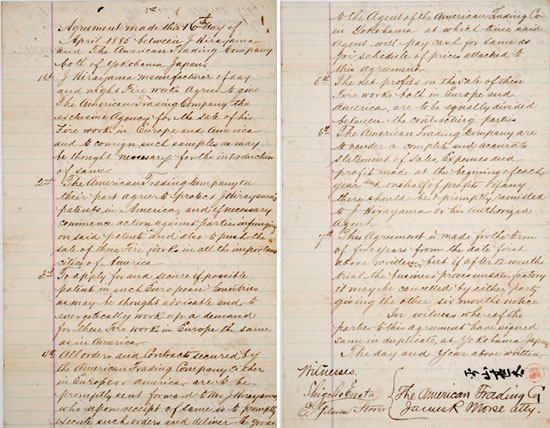 Agreement made this 16th day of
April 1885 between J Hirayama
and The American Trading Company
both of Yokohama Japan.
1st J Hirayama manufacturer of day
and night Fire works Agrees to give
The American Trading Company the
exclusive Agency for the sale of his
Fire works in Europe and America
and to consign such samples as may
be thought necessary for the introduction
of same
2nd The American Trading Company on
their part agree to protect J Hirayama's
patents in America, and if necessary
commence action against parties infringing
on said patents and also to push the
sale of these Fire works in all the important
cities of America
3rd To apply for and secure if possible
patent in such European Countries
as may be thought advisable and to
energetically work up a demand
for these Fire works in Europe the same
as in America
4th All orders and Contracts secured by
the American Trading Company either
in Europe or america are to be
promptly sent forward to Mr J Hirayama
who upon receipt of same is to promptly
execute such orders and deliver the goods
to the Agent of the American Trading Co
in Yokohama at which time said
Agent will pay cash for same as
per schedule of prices attached to
this agreement.
5th The net profits on the sale of these
Fire works both in Europe and
America, are to be equally divided
between the contracting parties
6th The American Trading Company are
to render a complete and accurate
statement of Sales, Expenses and
profit made at the beginning of each
year and one half of profits if any
there should be promptly remitted
to J Hirayama or his Authorized
Agent.
7th This Agreement is made for the term
of five years from the date first
above written, but if after 12 months
trial the business proves unsatisfactory
it may be cancelled by either party
giving the other six months notice
In witness whereof the
parties to this agreement have signed
same in duplicate, at Yokohama Japan
The day and Year above written
Witnesses.
The American Trading Co
James R Morse Atty.